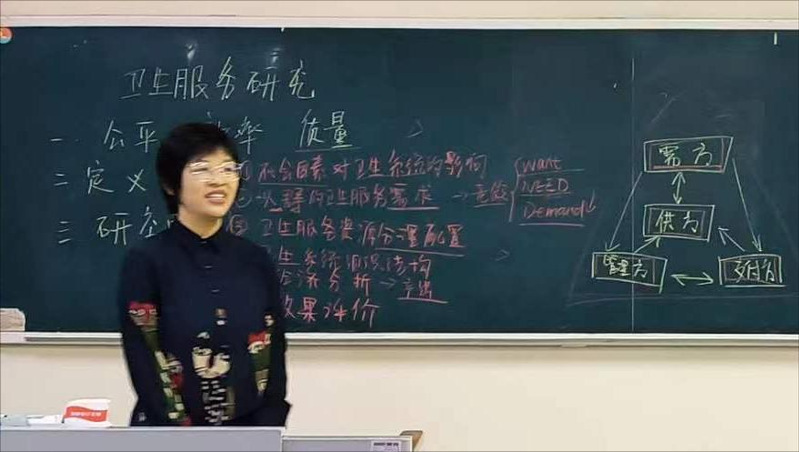 卫生服务研究
一 公平 效率 质量
二 定义
① 社会因素对卫生系统的影响
② 人群的卫生服务需求 → 意愿 Want
NEED
Demand
三 研究
③ 卫生服务资源合理配置
生系统 结构
经济分析 →
效果评价
需方
供方
管理方
支付方